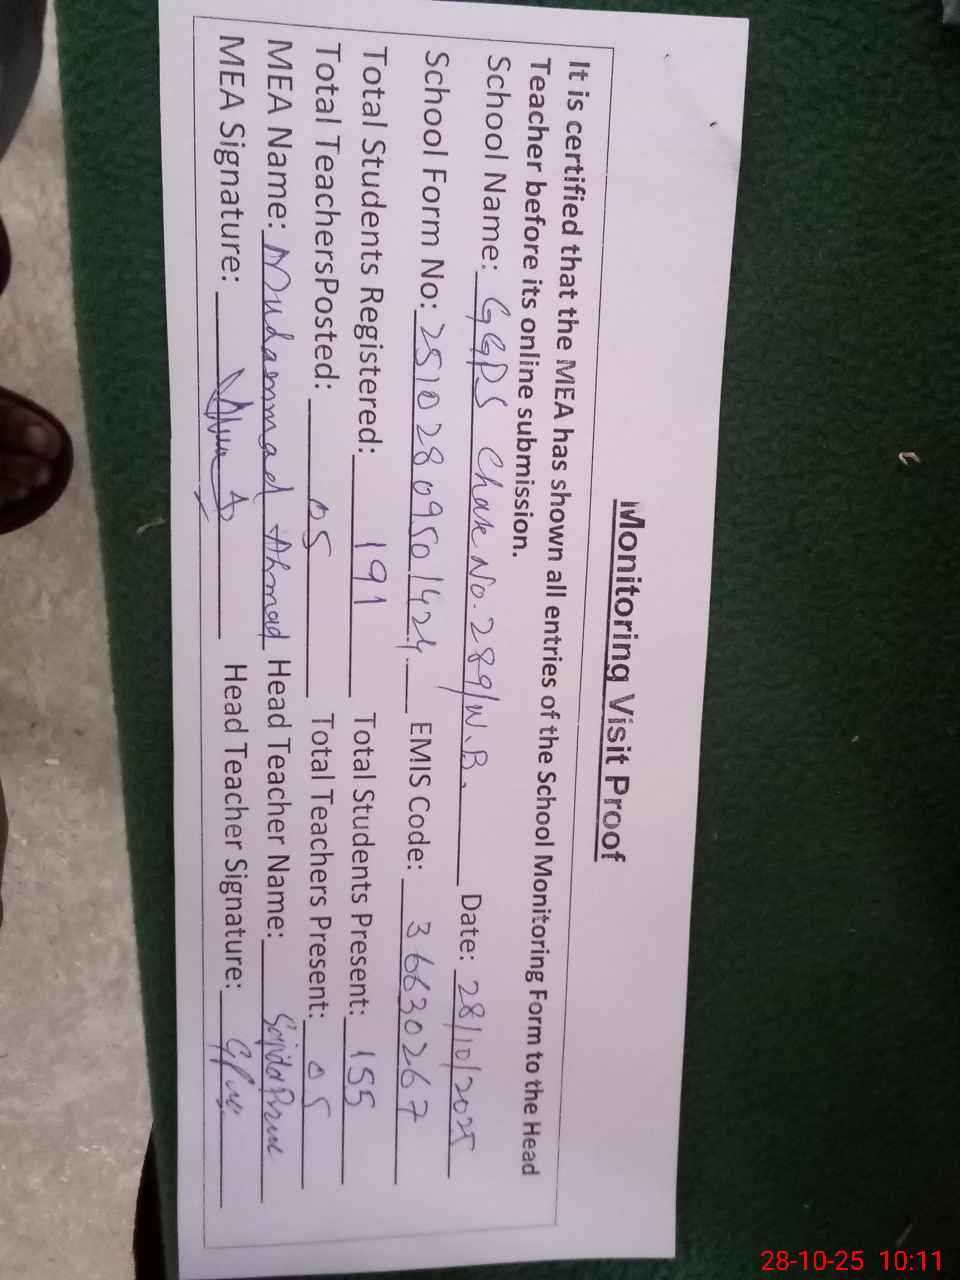 Monitoring Visit Proof
It is certified that the MEA has shown all entries of the School Monitoring Form to the Head
Teacher before its online submission.
School Name: GGPS Chak No. 289/W.B. Date: 28/10/2025
School Form No: 25102809501424 EMIS Code: 36630267
Total Students Registered: 191 Total Students Present: 155
Total TeachersPosted: 05 Total Teachers Present: 05
MEA Name: Muhammad Ahmad Head Teacher Name: Sajida
MEA Signature: Head Teacher Signature:
28-10-25 10:11